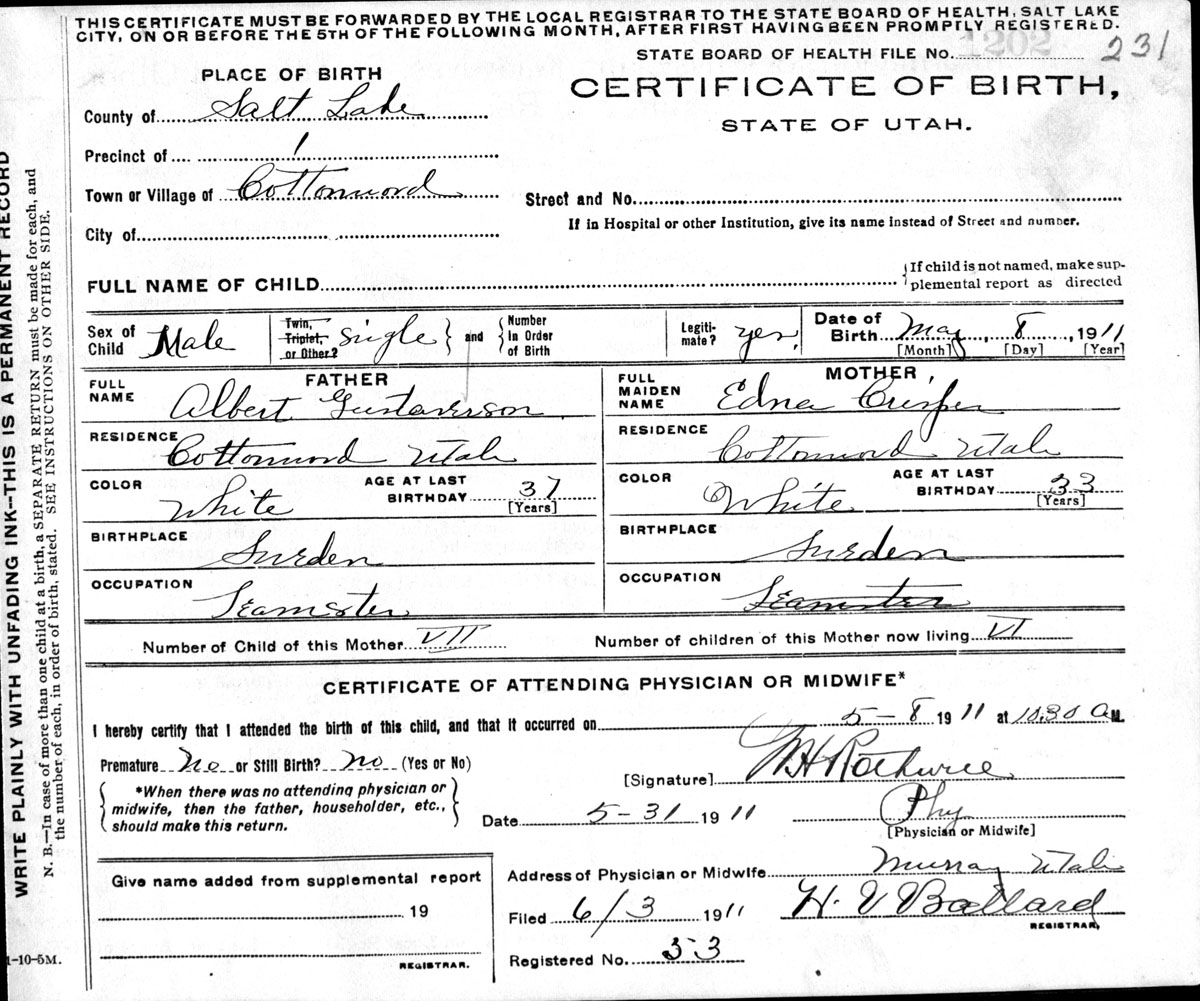 THIS CERTIFICATE MUST BE FORWARDED BY THE LOCAL REGISTRAR TO THE STATE BOARD OF HEALTH, SALT LAKE
CITY, ON OR BEFORE THE 5TH OF THE FOLLOWING MONTH, AFTER FIRST HAVING BEEN PROMPTLY REGISTERED.
STATE BOARD OF HEALTH FILE No. 1202 231
PLACE OF BIRTH
CERTIFICATE OF BIRTH,
STATE OF UTAH.
County of Salt Lake
Precinct of 1
Town or Village of Cottonwood
Street and No.
If in Hospital or other Institution, give its name instead of Street and number.
City of
FULL NAME OF CHILD
If child is not named, make sup-
plemental report as directed
Sex of Child Male
Twin, Triplet, or Other? Single and Number in Order of Birth
Legiti-mate? yes
Date of Birth May 8, 1911
[Month] [Day] [Year]
FATHER
FULL NAME Albert Gustaverson
RESIDENCE Cottonwood Utah
COLOR White AGE AT LAST BIRTHDAY 37 [Years]
BIRTHPLACE Sweden
OCCUPATION Teamster
MOTHER
FULL MAIDEN NAME Edna
RESIDENCE Cottonwood Utah
COLOR White AGE AT LAST BIRTHDAY 33 [Years]
BIRTHPLACE Sweden
OCCUPATION Teamster
Number of Child of this Mother VII Number of children of this Mother now living VI
CERTIFICATE OF ATTENDING PHYSICIAN OR MIDWIFE*
I hereby certify that I attended the birth of this child, and that it occurred on 5-8 1911 at 10.30 a M.
Premature No or Still Birth? No (Yes or No)
*When there was no attending physician or
midwife, then the father, householder, etc.,
should make this return.
[Signature] W H
Date 5-31 1911 Phy
[Physician or Midwife]
Give name added from supplemental report
19
REGISTRAR.
Address of Physician or Midwife Murray Utah
Filed 6/3 1911 H. V Ballard
REGISTRAR,
Registered No. 53
1-10-5M.
WRITE PLAINLY WITH UNFADING INK--THIS IS A PERMANENT RECORD
N. B.—In case of more than one child at a birth, a SEPARATE RETURN must be made for each, and
the number of each, in order of birth, stated. SEE INSTRUCTIONS ON OTHER SIDE.